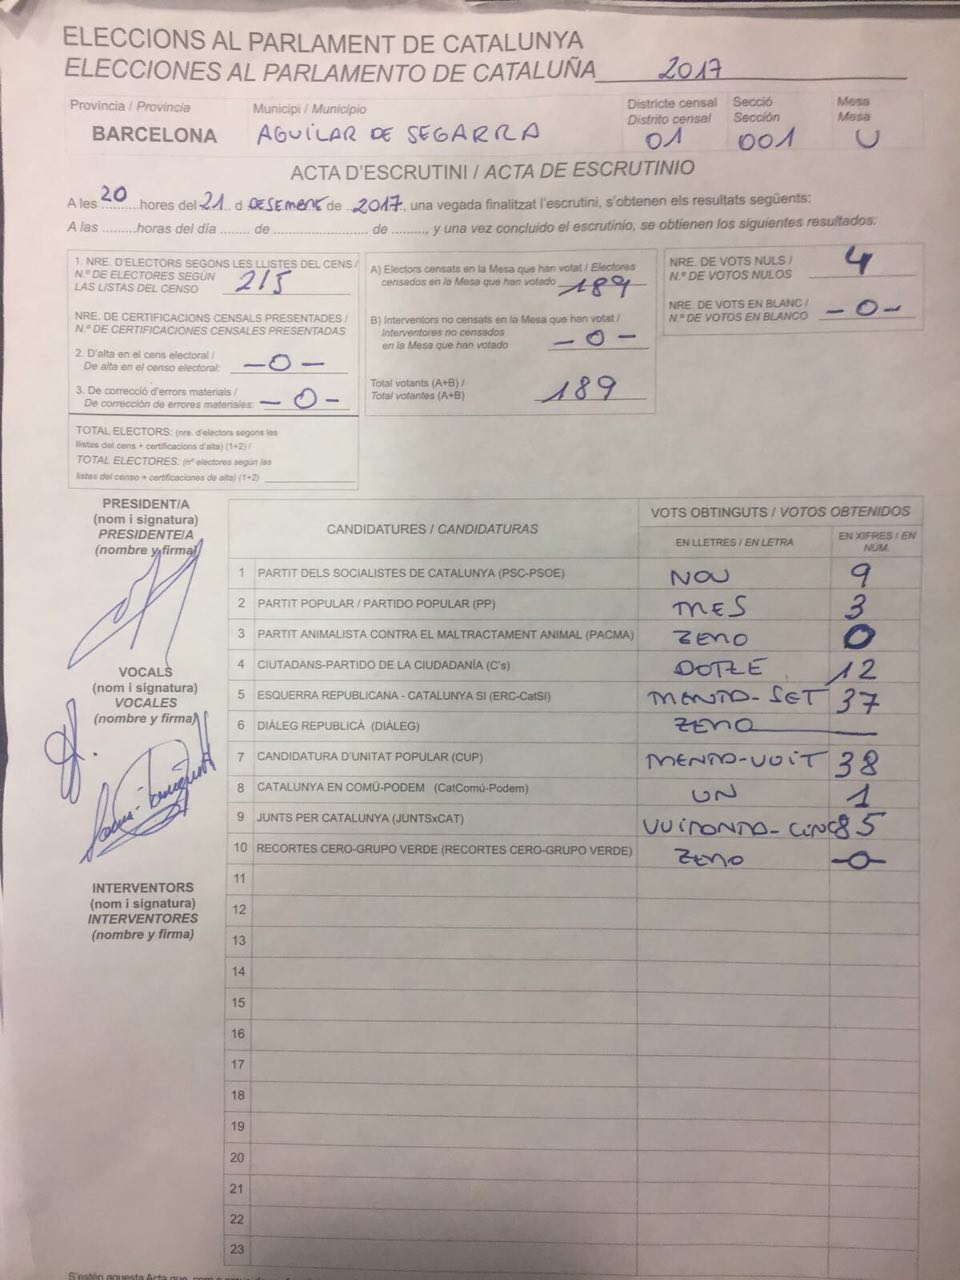 ELECCIONS AL PARLAMENT DE CATALUNYA
ELECCIONES AL PARLAMENTO DE CATALUÑA 2017
Província / Provincia
BARCELONA
Municipi / Municipio
AGUILAR DE SEGARRA
Districte censal
Distrito censal
01
Secció
Sección
001
Mesa
Mesa
U
ACTA D'ESCRUTINI / ACTA DE ESCRUTINIO
A les 20 hores del 21 d DESEMBRE de 2017, una vegada finalitzat l'escrutini, s'obtenen els resultats següents:
A las .........horas del día ........ de ......................... de ........., y una vez concluido el escrutinio, se obtienen los siguientes resultados:
1. NRE. D'ELECTORS SEGONS LES LLISTES DEL CENS /
N.º DE ELECTORES SEGÚN
LAS LISTAS DEL CENSO 215
NRE. DE CERTIFICACIONS CENSALS PRESENTADES /
N.º DE CERTIFICACIONES CENSALES PRESENTADAS
2. D'alta en el cens electoral /
De alta en el censo electoral: -0-
3. De correcció d'errors materials /
De corrección de errores materiales: -0-
TOTAL ELECTORS: (nre. d'electors segons les
llistes del cens + certificacions d'alta) (1+2) /
TOTAL ELECTORES: (nº electores según las
listas del censo + certificaciones de alta) (1+2)
A) Electors censats en la Mesa que han votat / Electores
censados en la Mesa que han votado 189
B) Interventors no censats en la Mesa que han votat /
Interventores no censados
en la Mesa que han votado -0-
Total votants (A+B) /
Total votantes (A+B) 189
NRE. DE VOTS NULS /
N.º DE VOTOS NULOS 4
NRE. DE VOTS EN BLANC /
N.º DE VOTOS EN BLANCO -0-
PRESIDENT/A
(nom i signatura)
PRESIDENTE/A
(nombre y firma)
VOCALS
(nom i signatura)
VOCALES
(nombre y firma)
INTERVENTORS
(nom i signatura)
INTERVENTORES
(nombre y firma)
CANDIDATURES / CANDIDATURAS
VOTS OBTINGUTS / VOTOS OBTENIDOS
EN LLETRES / EN LETRA
EN XIFRES / EN NÚM.
1 PARTIT DELS SOCIALISTES DE CATALUNYA (PSC-PSOE) NOU 9
2 PARTIT POPULAR / PARTIDO POPULAR (PP) TRES 3
3 PARTIT ANIMALISTA CONTRA EL MALTRACTAMENT ANIMAL (PACMA) ZERO 0
4 CIUTADANS-PARTIDO DE LA CIUDADANÍA (C's) DOTZE 12
5 ESQUERRA REPUBLICANA - CATALUNYA SÍ (ERC-CatSí) TRENTA-SET 37
6 DIÀLEG REPUBLICÀ (DIÀLEG) ZERO
7 CANDIDATURA D'UNITAT POPULAR (CUP) TRENTA-VUIT 38
8 CATALUNYA EN COMÚ-PODEM (CatComú-Podem) UN 1
9 JUNTS PER CATALUNYA (JUNTSxCAT) VUITANTA-CINC 85
10 RECORTES CERO-GRUPO VERDE (RECORTES CERO-GRUPO VERDE) ZERO -0-
11
12
13
14
15
16
17
18
19
20
21
22
23